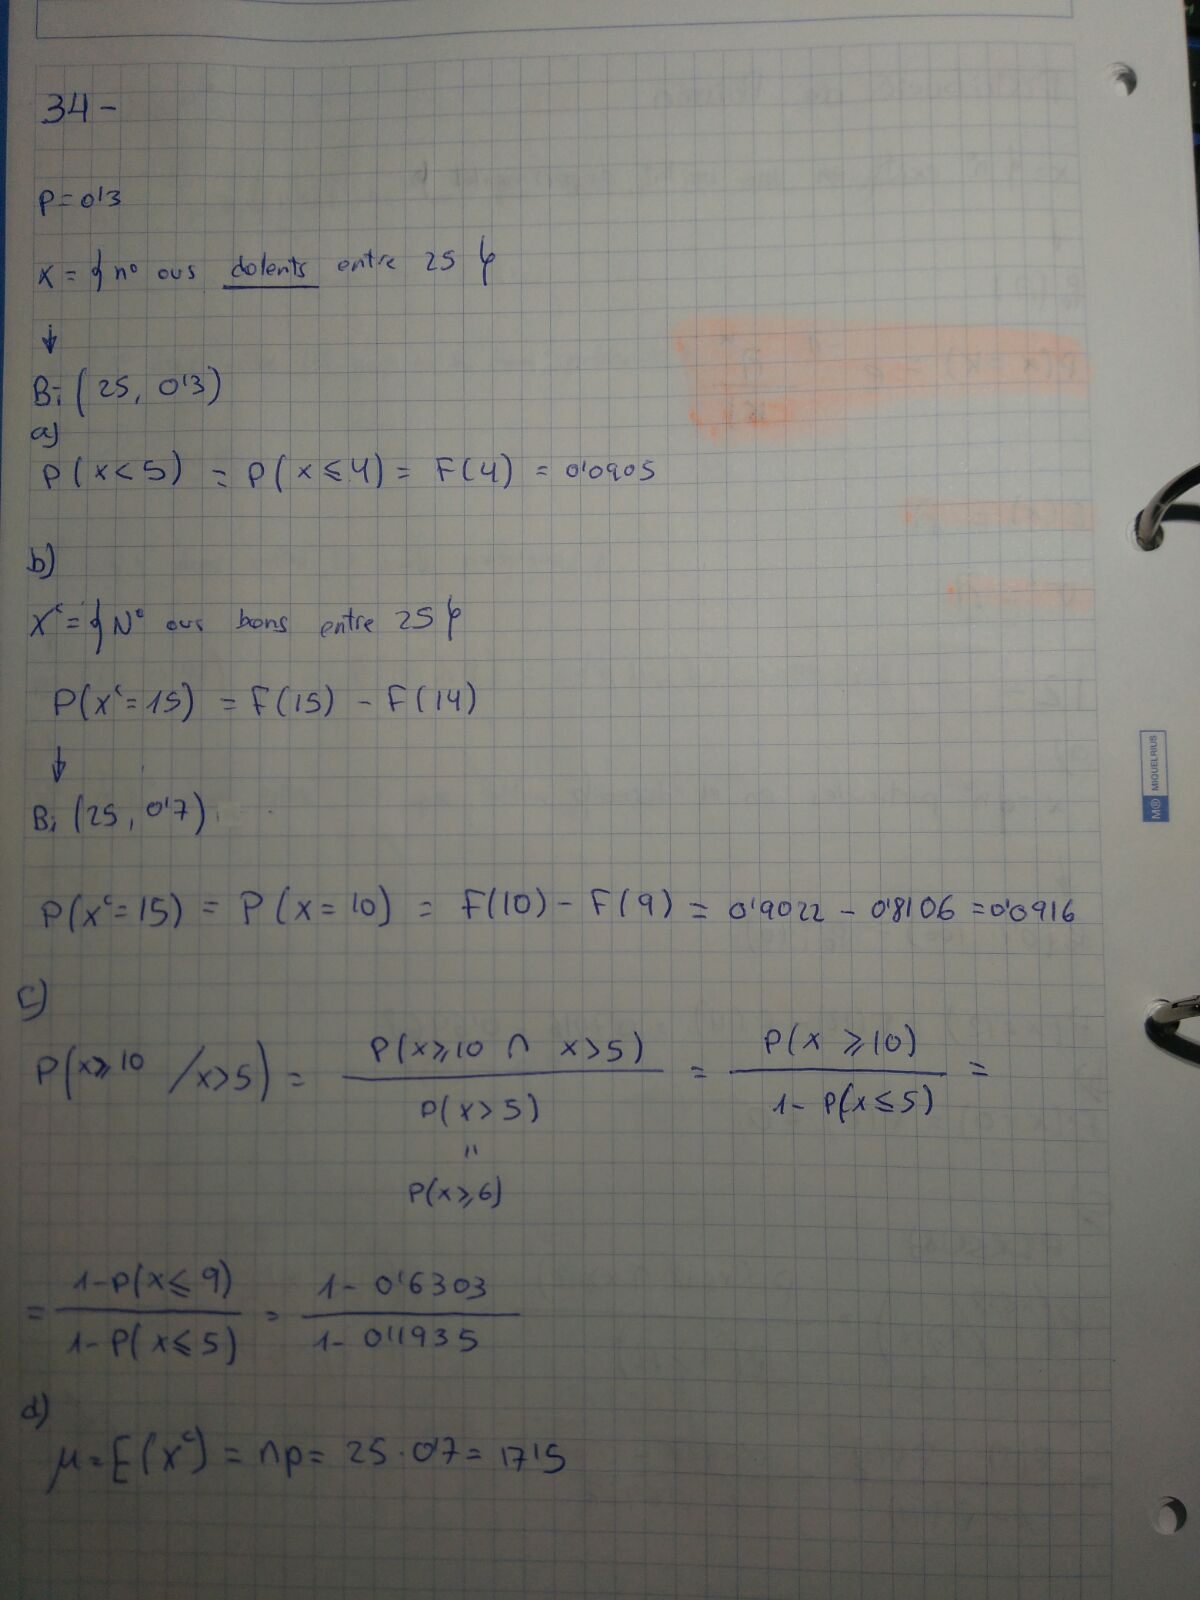 34-
P=0'3
X = { nº ous dolents entre 25 }
↓
Bi (25, 0'3)
a)
P(x<5) = P(x≤4) = F(4) = 0'0905
b)
Xᶜ = { Nº ous bons entre 25 }
P(Xᶜ=15) = F(15) - F(14)
↓
Bi (25, 0'7)
P(Xᶜ=15) = P(x=10) = F(10) - F(9) = 0'9022 - 0'8106 = 0'0916
c)
P(x≥10 / x>5) = P(x≥10 ∩ x>5) / P(x>5) = P(x≥10) / 1-P(x≤5) =
"
P(x≥6)
= 1-P(x≤9) / 1-P(x≤5) = 1-0'6303 / 1-0'1935
d)
μ = E(Xᶜ) = np = 25·0'7 = 17'5
M® MIQUELRIUS